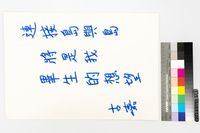 連接島與島
將是我
畢生的想望
古嘉